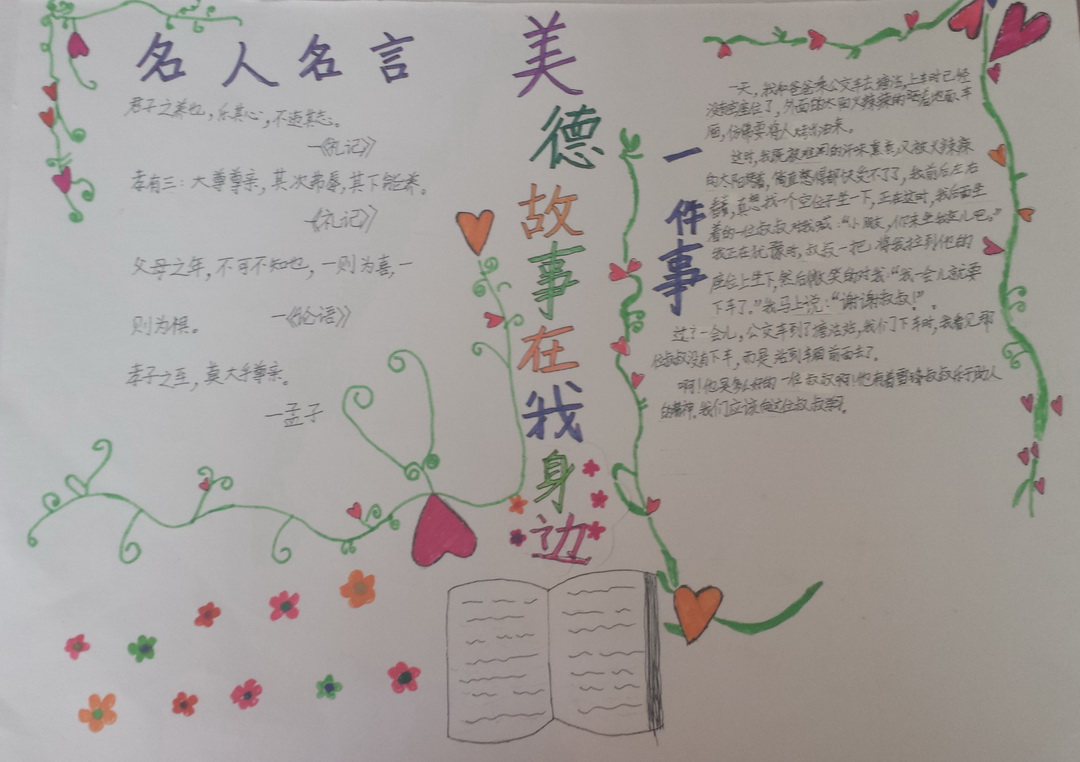 名人名言
君子之养也，乐其心，不违其志。
—《礼记》
孝有三：大尊尊亲，其次弗辱，其下能养。
—《礼记》
父母之年，不可不知也，一则为喜，一
则为惧。 —《论语》
孝子之至，莫大乎尊亲。
—孟子
美德故事在我身边
一件事
一天，我和爸爸乘公交车去塘沽，上车时已经
没有座位了，外面的太阳火辣辣的照着地面、车
厢，仿佛要将人烤出油来。
这时，我既被难闻的汗味熏着，又被火辣辣
的太阳晒着，简直憋得都快受不了了，我前后左右
看看，真想找一个空位子坐一下，正在这时，我后面坐
着的一位叔叔对我喊：“小朋友，你来坐我这儿吧。”
我正在犹豫时，叔叔一把将我拉到他的
座位上坐下，然后微笑的对我：“我一会儿就要
下车了。”我马上说：“谢谢叔叔！”。
过了一会儿，公交车到了塘沽站，我们下车时，我看见那
位叔叔没有下车，而是站到车厢前面去了。
啊！他是多么好的一位叔叔啊！他有着雷锋叔叔乐于助人
的精神，我们应该向这位叔叔学习。